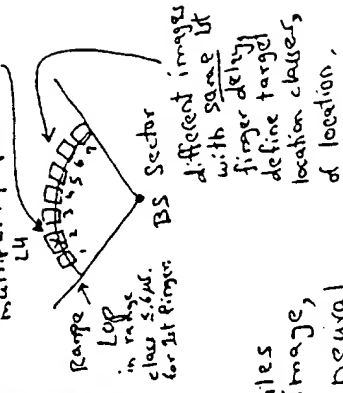 24
1 2 3 4 5 6 7
Range
LOP
in range
class 5.6µs.
for 1st finger.
BS Sector
different images
with same 1st
finger delay
define target
location classes,
of location.
iles
image,
neural